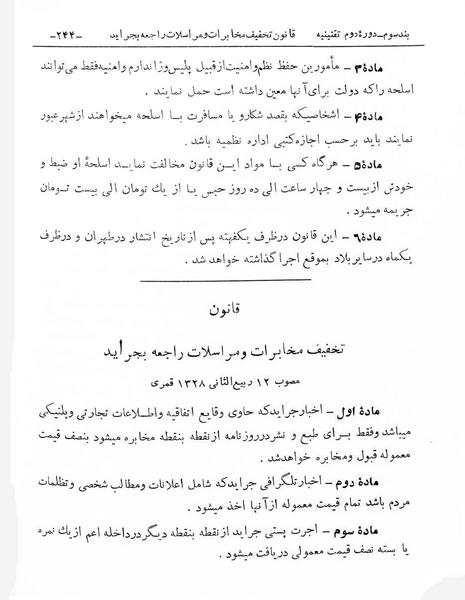 بند سوم - دورۀ دوم تقنینیه    قانون تخفیف مخابرات و مراسلات راجعه بجراید    -۲۴۴-
مادۀ ۳ - مأمورین حفظ نظم و امنیت از قبیل پلیس و ژاندارم وامنیه فقط می‌توانند
اسلحه را که دولت برای آنها معین داشته است حمل نمایند .
مادۀ ۴ - اشخاصیکه بقصد شکار و یا مسافرت با اسلحه میخواهند از شهر عبور
نمایند باید بر حسب اجازه کتبی اداره نظمیه باشد .
مادۀ ۵ - هرگاه کسی با مواد این قانون مخالفت نماید اسلحۀ او ضبط و
خودش از بیست و چهار ساعت الی ده روز حبس یا از یك تومان الی بیست تومان
جریمه میشود .
مادۀ ۶ - این قانون در ظرف یکهفته پس از تاریخ انتشار در طهران و در ظرف
یکماه در سایر بلاد بموقع اجرا گذاشته خواهد شد .
قانون
تخفیف مخابرات و مراسلات راجعه بجراید
مصوب ۱۲ ربیع الثانی ۱۳۲۸ قمری
مادۀ اول - اخبار جراید که حاوی وقایع اتفاقیه واطلاعات تجارتی و پلتیکی
میباشد وفقط برای طبع و نشر در روزنامه از نقطه بنقطه مخابره میشود بنصف قیمت
معموله قبول ومخابره خواهد شد .
مادۀ دوم - اخبار تلگرافی جراید که شامل اعلانات ومطالب شخصی وتظلمات
مردم باشد تمام قیمت معموله از آنها اخذ میشود .
مادۀ سوم - اجرت پستی جراید از نقطه بنقطه دیگر در داخله اعم از یك نمره
یا بسته نصف قیمت معمولی دریافت میشود .